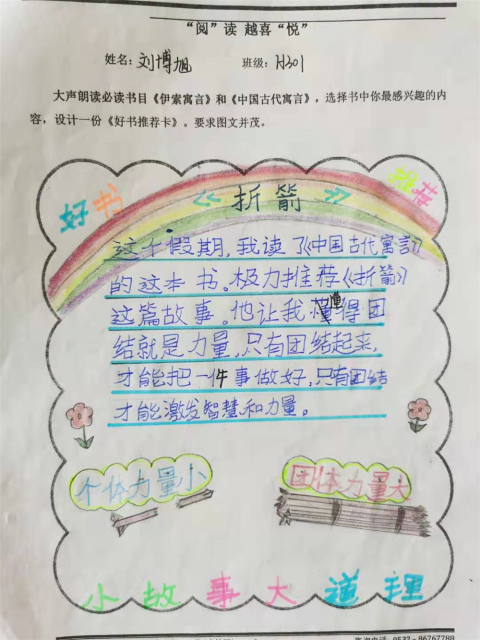 “阅”读 越喜“悦”
姓名：刘博旭 班级：
大声朗读必读书目《伊索寓言》和《中国古代寓言》，选择书中你最感兴趣的内
容，设计一份《好书推荐卡》。要求图文并茂。
好书 《折箭》 推荐
这个假期，我读了《中国古代寓言》
的这本书。极力推荐《折箭》
这篇故事。他让我懂得团
结就是力量，只有团结起来，
才能把一件事做好，只有团结
才能激发智慧和力量。
个体力量小 团体力量大
小故事大道理
咨询电话：0532-86767788